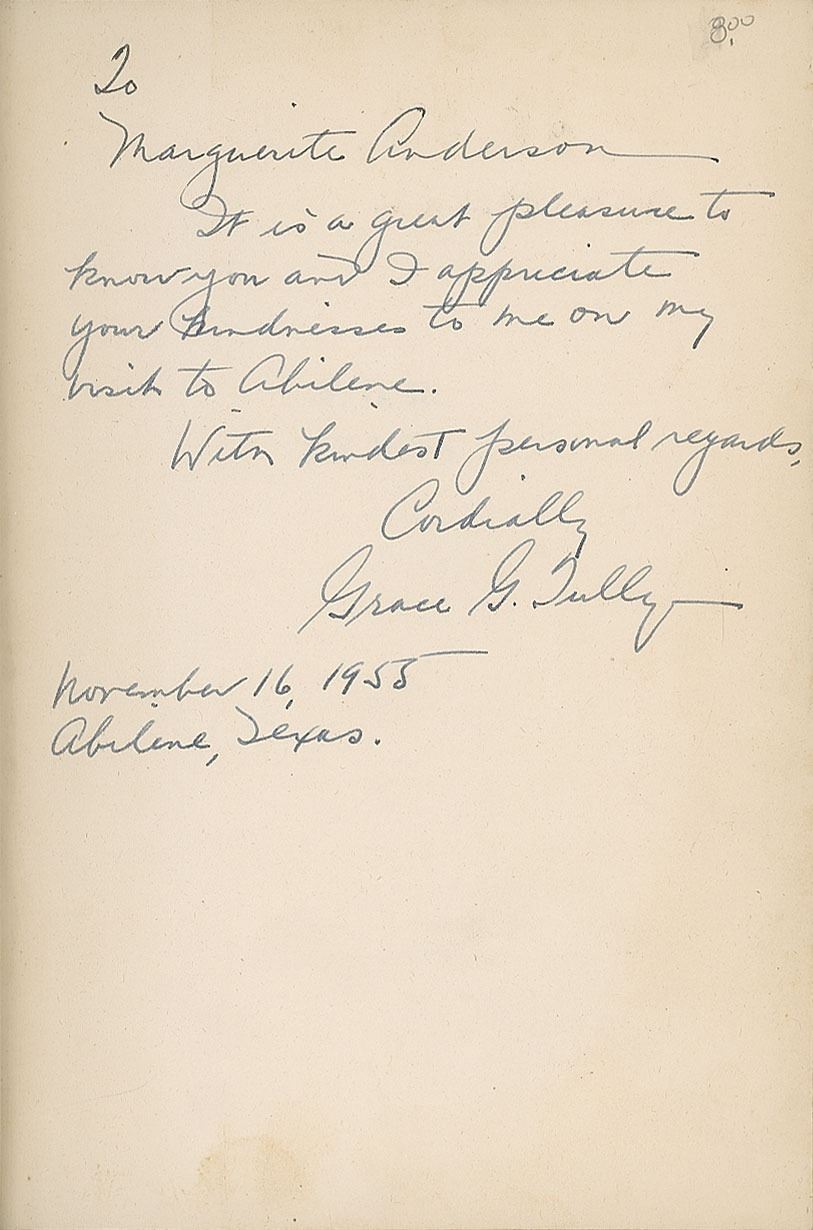 8.00
To
Marguerite Anderson
It is a great pleasure to
know you and I appreciate
your kindnesses to me on my
visit to Abilene.
With kindest personal regards,
Cordially
Grace G. Tully
November 16, 1955
Abilene, Texas.